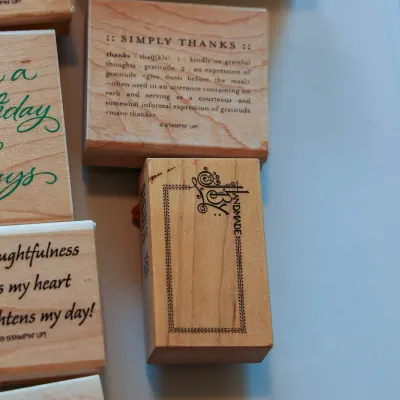 STAMPIN' UP!
:: SIMPLY THANKS ::
thanks \thaŋ(k)s\ 1 : kindly or grateful
thoughts : gratitude 2 : an expression of
gratitude <give thanks before the meal>
<often used in an utterance containing no
verb and serving as a courteous and
somewhat informal expression of gratitude
<many thanks>
© STAMPIN' UP!
a
day
ays
HANDMADE
BY
ughtfulness
s my heart
htens my day!
© STAMPIN' UP!